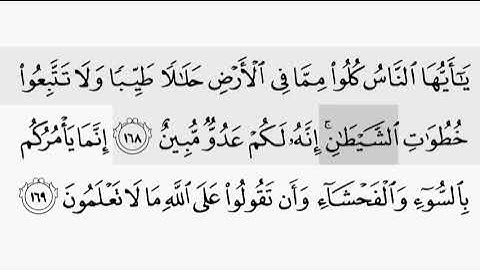 يَـٰٓأَيُّهَا ٱلنَّاسُ كُلُوا۟ مِمَّا فِى ٱلْأَرْضِ حَلَـٰلًا طَيِّبًا وَلَا تَتَّبِعُوا۟
خُطُوَٰتِ ٱلشَّيْطَـٰنِ ۚ إِنَّهُۥ لَكُمْ عَدُوٌّ مُّبِينٌ ١٦٨ إِنَّمَا يَأْمُرُكُم
بِٱلسُّوٓءِ وَٱلْفَحْشَآءِ وَأَن تَقُولُوا۟ عَلَى ٱللَّهِ مَا لَا تَعْلَمُونَ ١٦٩